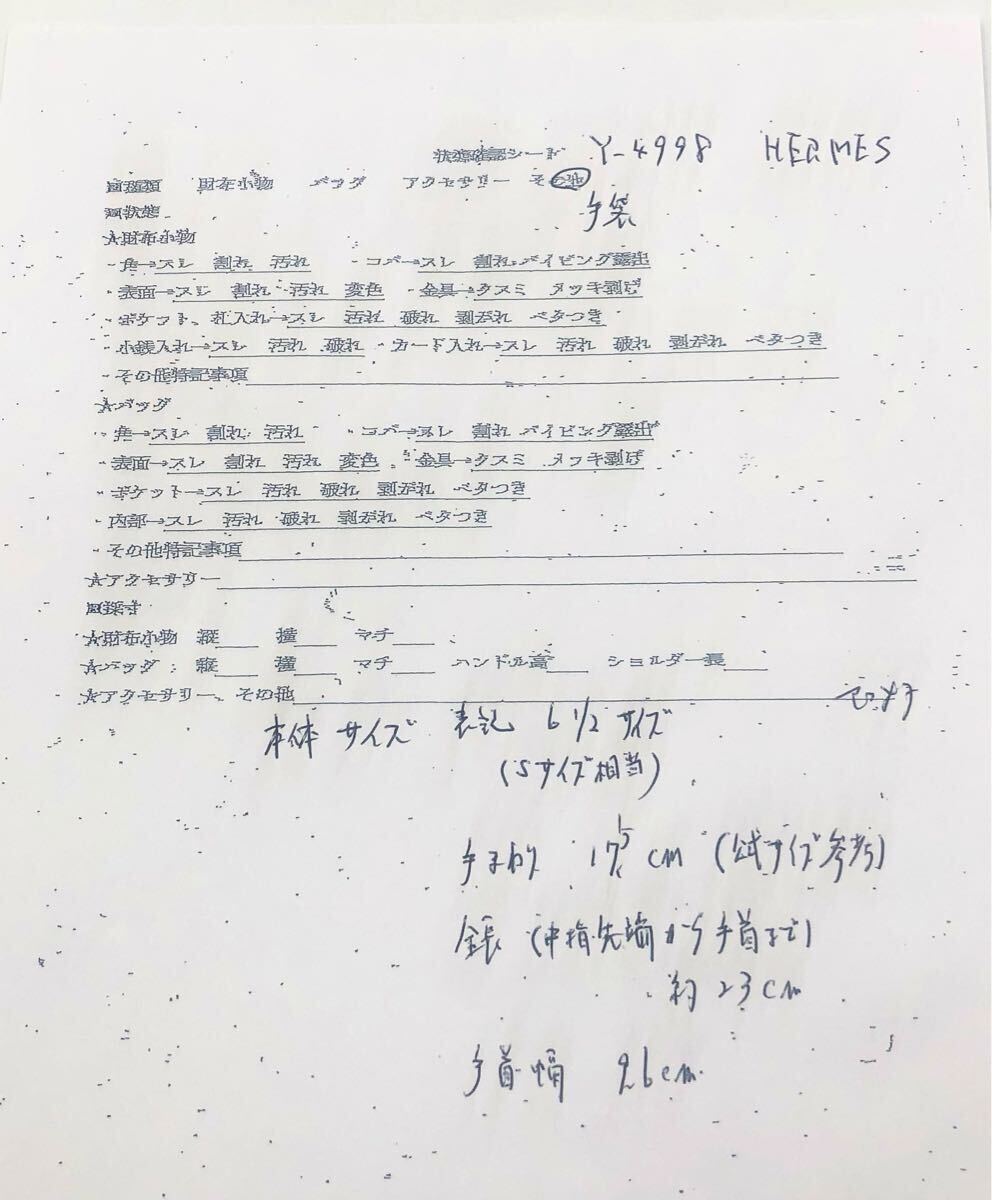 状態確認シート Y-4998 HERMES
□種類 財布小物 バッグ アクセサリー その他
手袋
□状態
★財布小物
・角→スレ 割れ 汚れ ・コバ→スレ 割れ パイピング露出
・表面→スレ 割れ 汚れ 変色 ・金具→クスミ メッキ剥げ
・ポケット、札入れ→スレ 汚れ 破れ 剥がれ ベタつき
・小銭入れ→スレ 汚れ 破れ ・カード入れ→スレ 汚れ 破れ 剥がれ ベタつき
・その他特記事項
★バッグ
・角→スレ 割れ 汚れ ・コバ→スレ 割れ パイピング露出
・表面→スレ 割れ 汚れ 変色 ・金具→クスミ メッキ剥げ
・ポケット→スレ 汚れ 破れ 剥がれ ベタつき
・内部→スレ 汚れ 破れ 剥がれ ベタつき
・その他特記事項
★アクセサリー
□採寸
★財布小物 縦 横 マチ
★バッグ:縦 横 マチ ハンドル高 ショルダー長
★アクセサリー、その他
本体サイズ 表記 6 1/2 サイズ
(Sサイズ相当)
手まわり 17.5 cm (公式サイズ参考)
全長 (中指先端から手首まで)
約 23 cm
手首幅 9.6 cm